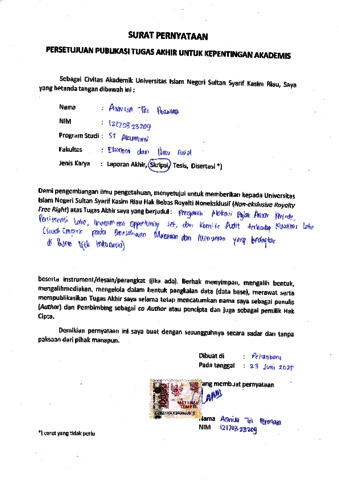 SURAT PERNYATAAN
PERSETUJUAN PUBLIKASI TUGAS AKHIR UNTUK KEPENTINGAN AKADEMIS
Sebagai Civitas Akademik Universitas Islam Negeri Sultan Syarif Kasim Riau, Saya
yang betanda tangan dibawah ini :
Nama :
NIM :
Program Studi : S1 Akuntansi
Fakultas : Ekonomi dan Ilmu Sosial
Jenis Karya : Laporan Akhir, Skripsi, Tesis, Disertasi *)
Demi pengembangan ilmu pengetahuan, menyetujui untuk memberikan kepada Universitas
Islam Negeri Sultan Syarif Kasim Riau Hak Bebas Royalti Noneksklusif (Non-eksklusive Royalty
Free Right) atas Tugas Akhir saya yang berjudul : Pengaruh Alokasi Pajak Antar Periode,
Persistensi Laba, Investment Opportunity Set, dan Komite Audit terhadap Kualitas Laba
(Studi Empiris pada Perusahaan Makanan dan Minuman yang terdaftar
di Bursa Efek Indonesia)
beserta instrument/desain/perangkat (jika ada). Berhak menyimpan, mengalih bentuk,
mengalihmediakan, mengelola dalam bentuk pangkalan data (data base), merawat serta
mempublikasikan Tugas Akhir saya selama tetap mencatumkan nama saya sebagai penulis
(Author) dan Pembimbing sebagai co Author atau pencipta dan juga sebagai pemilik Hak
Cipta.
Demikian pernyataan ini saya buat dengan sesungguhnya secara sadar dan tanpa
paksaan dari pihak manapun.
Dibuat di : Pekanbaru
Pada tanggal : 23 Juni 2025
ang membuat pernyataan
METERAI
TEMPEL
Nama
NIM
*) coret yang tidak perlu